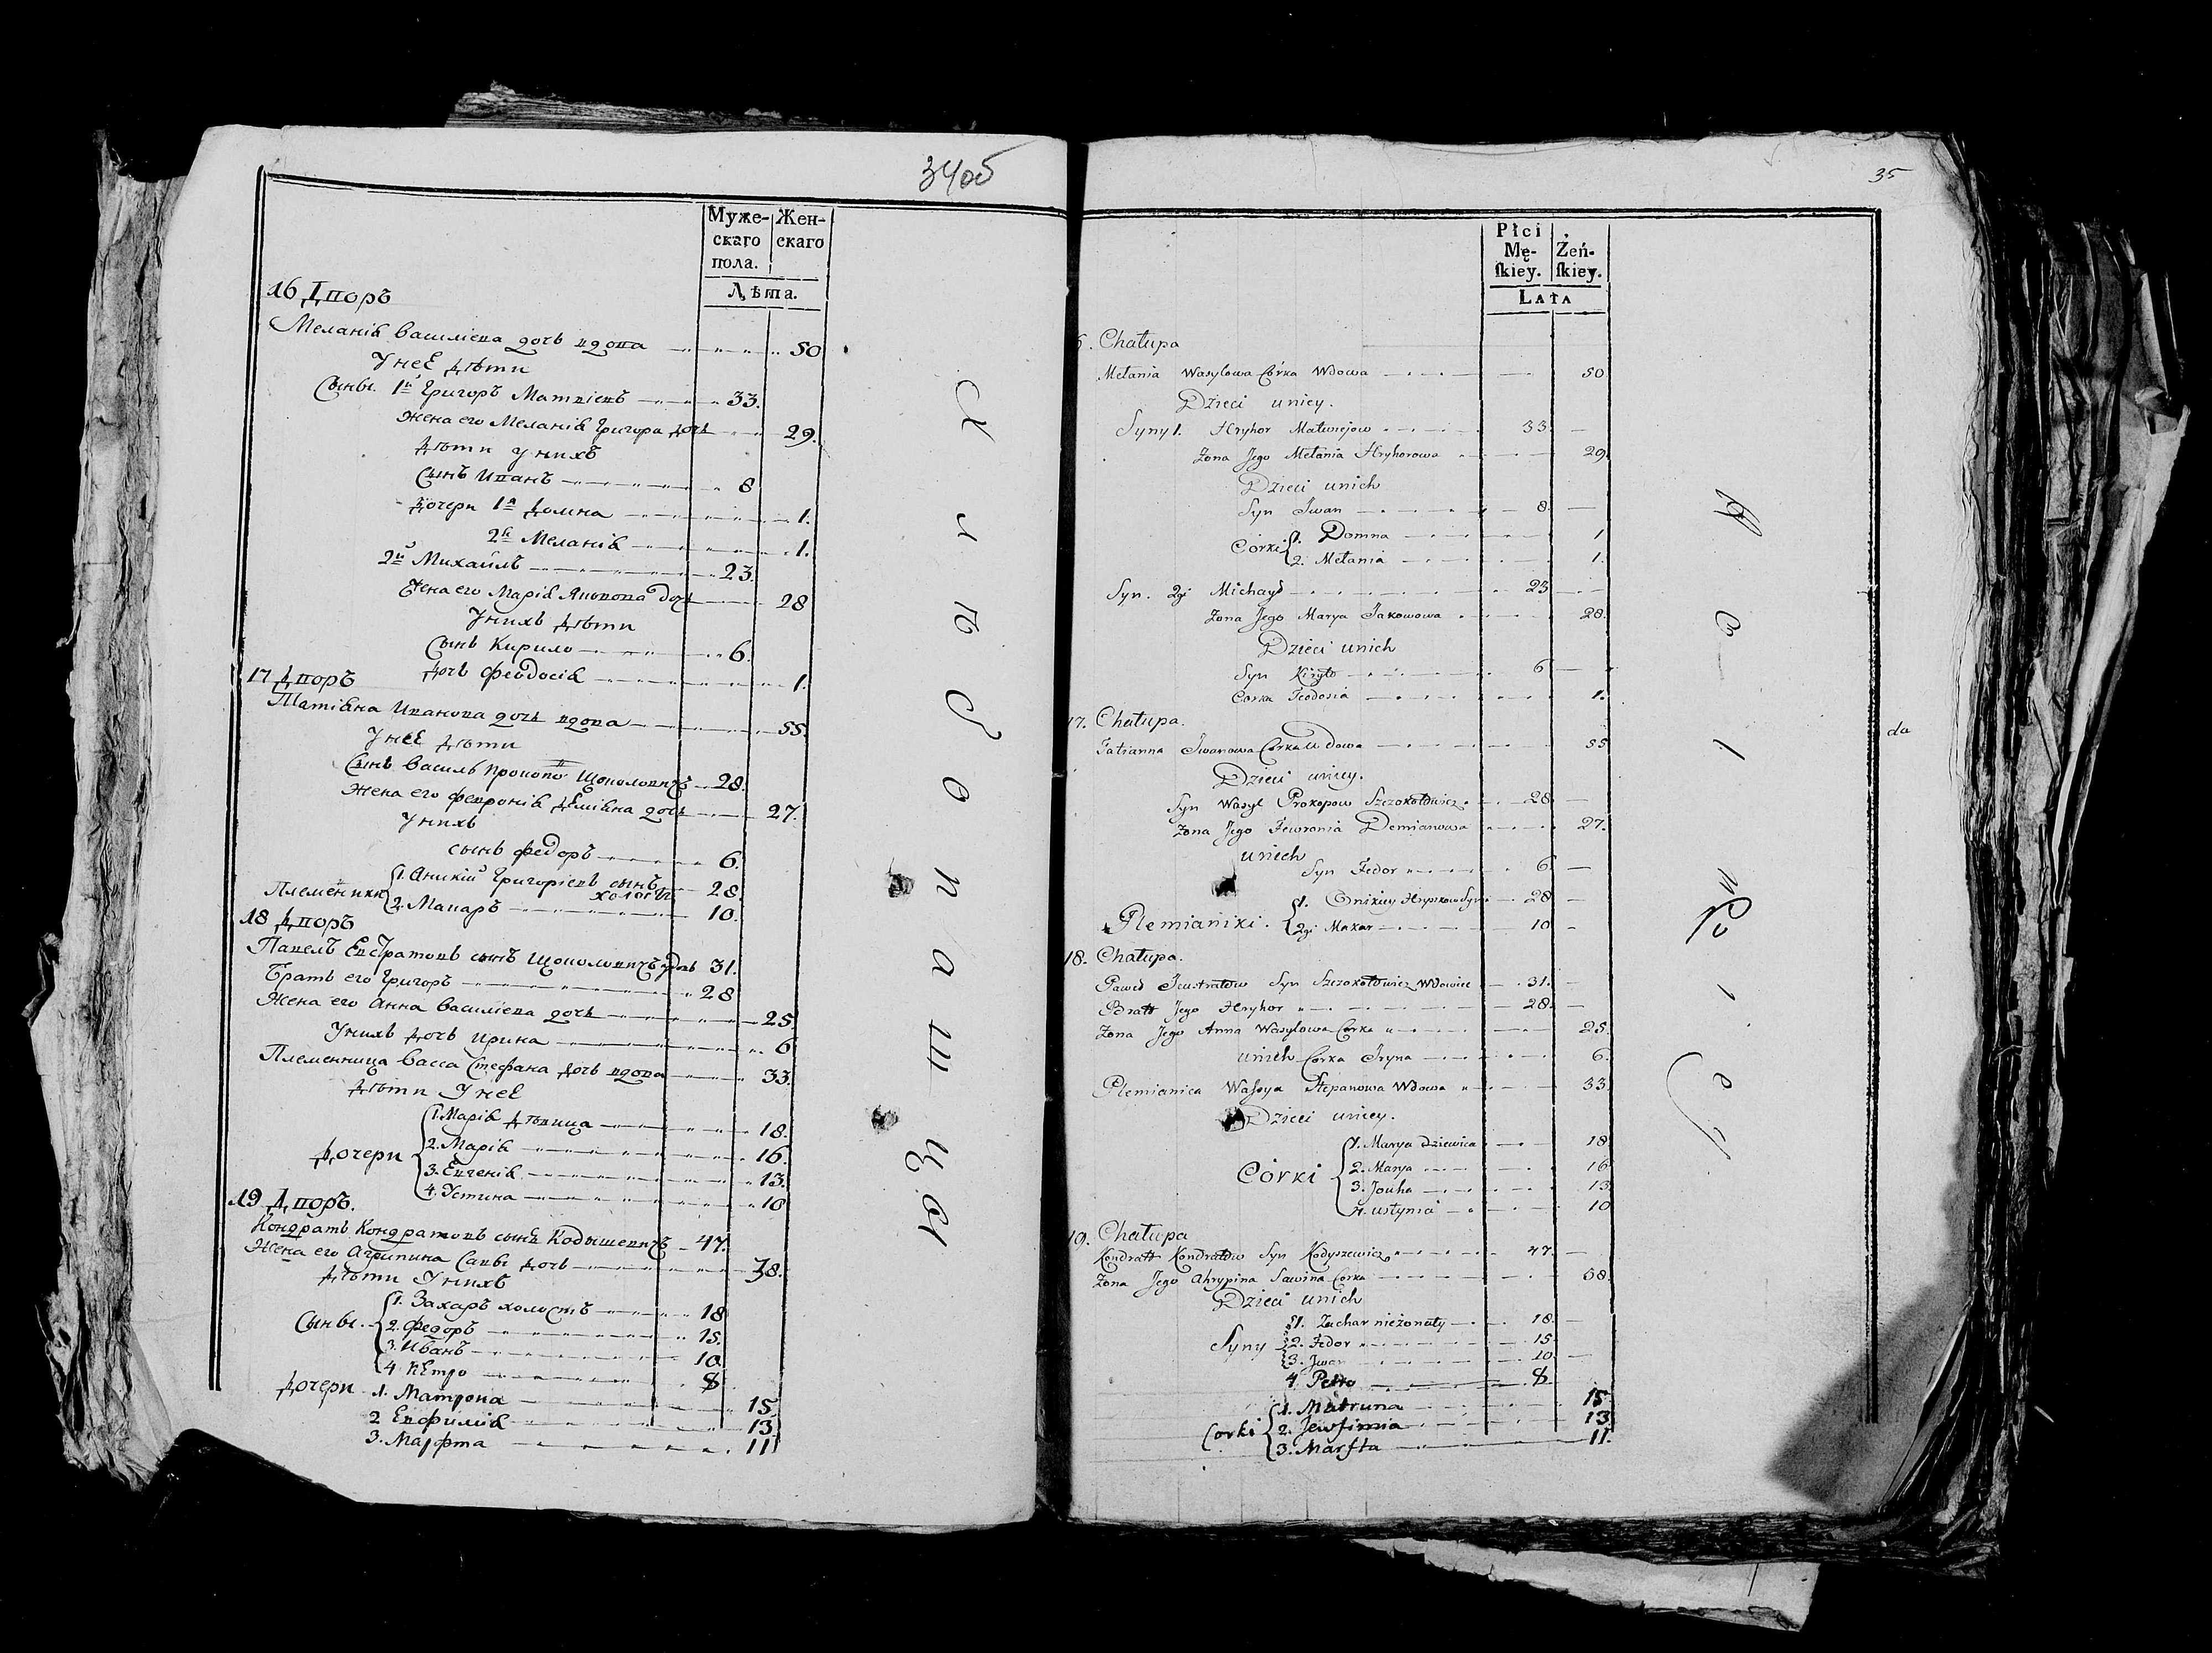 34об
Муже- Жен-
скаго скаго
пола.
Лѣта.
16 Дворъ
Меланiя Василiева дочь вдова 50
У нее дѣти
Сыны. 1й Григоръ Матвiевъ 33.
Жена его Меланiя Григора дочь 29.
Дѣти у нихъ
Сынъ Иванъ 8
Дочери 1я Домна 1.
2я Меланiя 1.
2й Михайлъ 23.
Жена его Марiя Яковова дочь 28
У нихъ дѣти
Сынъ Кирило 6.
Дочь Феодосiя 1.
17 Дворъ
Татiяна Иванова дочь вдова 55.
У нее дѣти
Сынъ Василь Прокопов Щоколовичъ 28.
Жена его Февронiя Демiяна дочь 27.
У нихъ
сынъ Федоръ 6.
Племенники 1. Оникiй Григорiевъ сынъ холостъ 28.
2. Макаръ 10.
18 Дворъ
Павелъ Евстратовъ сынъ Щоколовичъ вдовъ 31.
Братъ его Григоръ 28
Жена его Анна Василiева дочь 25
У нихъ дочь Ирина 6
Племенница Васса Стефана дочь вдова 33.
Дѣти у нее
Дочери 1. Марiя дѣвица 18.
2. Марiя 16.
3. Евгенiя 13.
4. Устина 10
19 Дворъ.
Кондратъ Кондратовъ сынъ Кодышевичъ 47.
Жена его Агрипина Савы дочь 38.
Дѣти у нихъ
Сыны. 1. Захаръ холостъ 18
2. Федоръ 15.
3. Иванъ 10.
4. Петро 8
Дочери 1. Матрона 15.
2 Евфимiя 13
3. Марфта 11
Хлѣбопашцы
35
Płci
Mę- Żeń-
ſkiey. ſkiey.
LATA
6. Chałupa
Mełania Wasylowa Córka Wdowa 50
Dzieci uniey.
Syny 1. Hryhor Matwiejow 33.
Zona Jego Mełania Hryhorowa 29.
Dzieci unich
Syn Jwan 8.
Córki 1. Domna 1
2. Mełania 1.
Syn. 2gi Michaył 23
Zona Jego Marya Jakowowa 28.
Dzieci unich
Syn Kiryło 6
Corka Teodosia 1.
17. Chałupa.
Tatianna Jwanowa Corka Wdowa 55
Dzieci uniey.
Syn Wasyl Prokopow Szczokołowicz 28.
Zona Jego Fewronia Demianowa 27.
unich
Syn Fedor 6.
Plemianiki. 1. Onikiey Hryszkow Syn 28
2gi Makar 10
18. Chałupa.
Paweł Jewstratow Syn Szczokołowicz Wdowiec 31.
Bratt Jego Hryhor 28.
Zona Jego Anna Wasylowa Corka 25.
unich Corka Jryna 6.
Plemianica Wassya Stepanowa Wdowa 33
Dzieci uniey.
Córki 1. Marya dziewica 18
2. Marya 16
3. Jouha 13
4. ustynia 10
19. Chałupa
Kondratt Kondratow Syn Kodyszewicz 47.
Zona Jego Ahrypina Sawina Corka 38.
Dzieci unich
Syny 1. Zachar nieżonaty 18.
2. Fedor 15
3. Jwan 10
4. Petro 8.
Corki 1. Matruna 15
2. Jewfimia 13
3. Marfta 11.
da